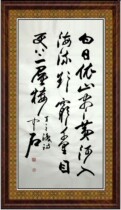 白日依山尽黄河入
海流欲窮千里目
更上一層樓 王之涣诗
中石